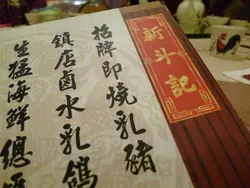 新斗記
招牌即燒乳豬
鎮店鹵水乳鴿
生猛海鮮總